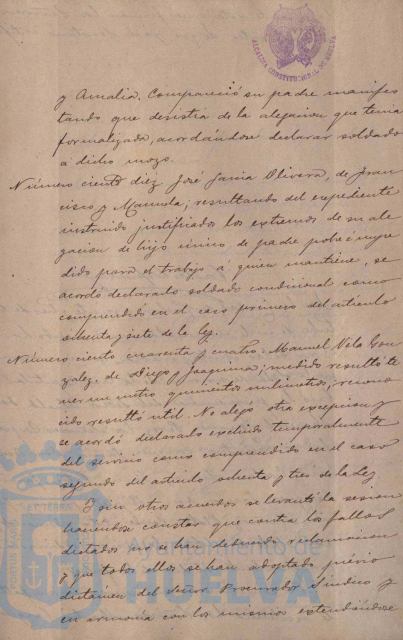 ALCALDIA CONSTITUCIONAL DE HUELVA
y Amalia. Compareció su padre manifes
tando que desistia de la alegacion que tenia
formalizada, acordándose declarar soldado
á dicho mozo.
Número ciento diez José Garcia Olivera, de Fran
cisco y Manuela; resultando del expediente
instruido justificados los extremos de su ale
gacion de hijo único de padre pobre é impe
dido para el trabajo á quien mantiene, se
acordó declararlo soldado condicional como
comprendido en el caso primero del articulo
ochenta y siete de la ley.
Número ciento cuarenta y cuatro. Manuel Vela Gon
zalez, de Diego y Joaquina; medido resultó te
ner un metro quinientos milimetros; recono
cido resultó util. No alegó otra excepcion y
se acordó declararlo excluido temporalmente
del servicio como comprendido en el caso
segundo del articulo ochenta y tres de la ley
Y sin otros acuerdos se levantó la sesion
haciendose constar que contra los fallos
dictados no se han deducido reclamacion
y que todos ellos se han adoptado prévio
dictámen del Señor Procurador Sindico y
en armonía con los mismos extendiéndose
Ayuntamiento de
HUELVA